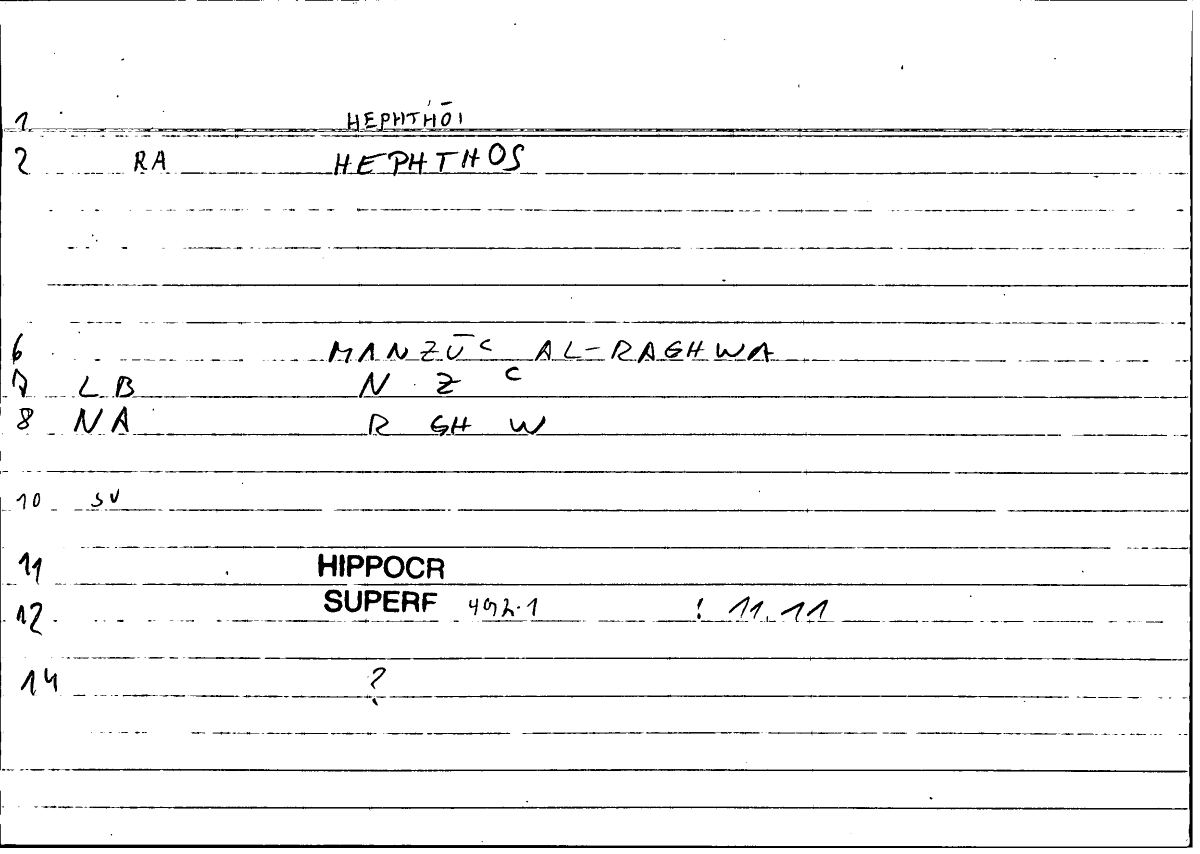 1 HEPHTHŌI
2 RA HEPHTHOS
6 MANZŪc AL-RAGHWA
7 LB N Z c
8 NA R GH W
10 SV
11 HIPPOCR
12 SUPERF 492.1 : 11.11
14 ?